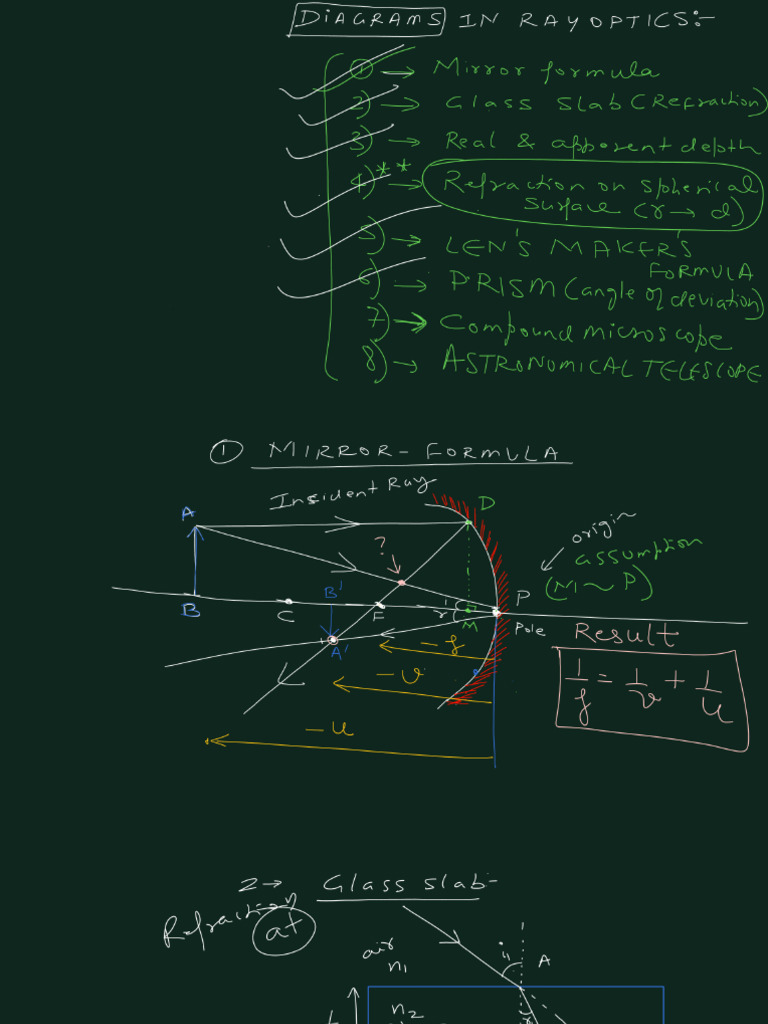 DIAGRAMS IN RAY OPTICS:-
① → Mirror formula
2) → Glass slab (Refraction)
3) → Real & apparent depth
4)** → Refraction on spherical
surface (r → d)
5) → LEN'S MAKER'S
FORMULA
6) → PRISM (angle of deviation)
7) → Compound microscope
8) → ASTRONOMICAL TELESCOPE
① MIRROR-FORMULA
Insident Ray
D
A
origin
?
assumption
(M ~ P)
B'
P
B
C
F
r
i
M
Pole
A'
Result
-f
-v
1/f = 1/v + 1/u
-u
2→ Glass slab:-
Refraction
at
air
n1
i
A
n2
r
t